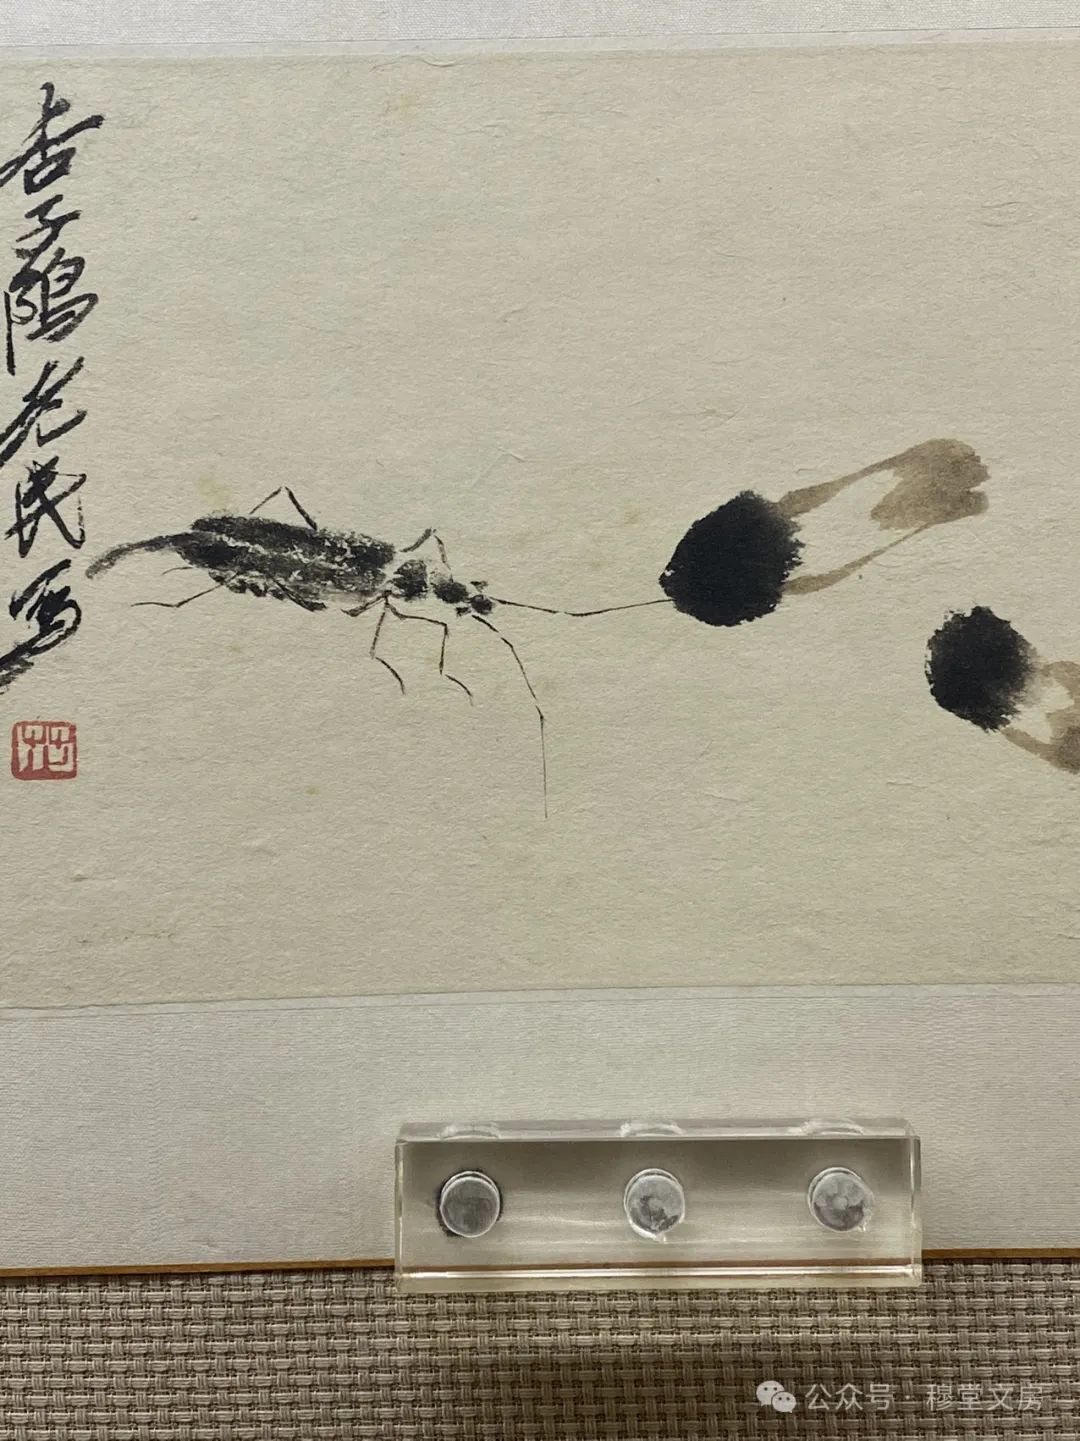 杏子隖老民寫
公众号 · 穆堂文房